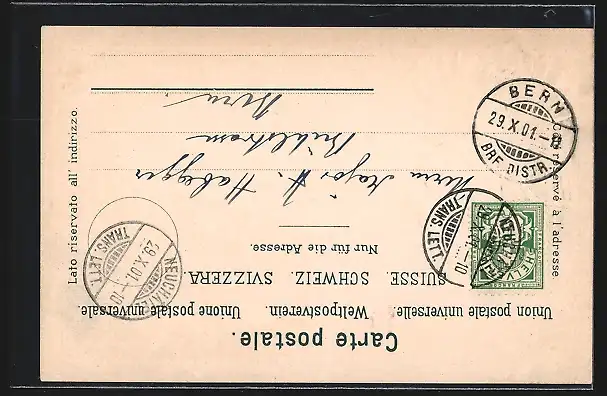 Carte postale.
Union postale universelle. Weltpostverein. Unione postale universale.
SUISSE. SCHWEIZ. SVIZZERA.
Nur für die Adresse.
Côté réservé à l'adresse
Lato riservato all' indirizzo.
Herrn Major H. Habegger
Bühlstrasse
Bern
BERN
29.X.01.
BRF. DISTR.
NEUCHATEL
29.X.01. 10
TRANS. LETT.
NEUCHATEL
29.X.01. 10
TRANS. LETT.
HELVETIA
FRANCO